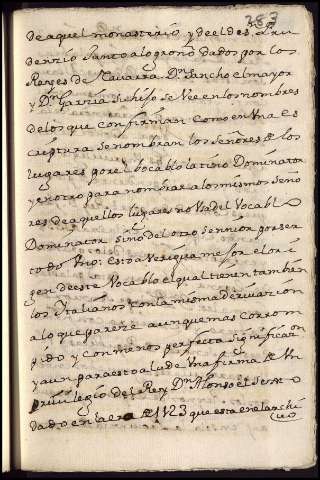 383
de aquel monasterio, y de el de S. Pru
dencio Junto a logroño dados por los
Reyes de Navarra Dn. Sancho el mayor
y Dn. Garzia su hijo se vee en los nombres
de los que confirman. Como en una es
criptura se nombran los señores de los
lugares por el bocablo latino Dominator
y en otro para nombrar a los mismos seño
res de aquellos lugares no Usa del Vocablo
Dominator sino del otro sennior por ser
todo Uno: Esto averigua mejor el ori
gen de este Vocablo el qual tienen tambien
los Italianos con la misma derivación
a lo que pareze aunque mas corrom
pido y con menos perfecta significaon
y aun para esto alude Una firma de Un
Privilegio del Rey Dn. Alonso el
dado en la era de 1123 que esta en el archi
(uo